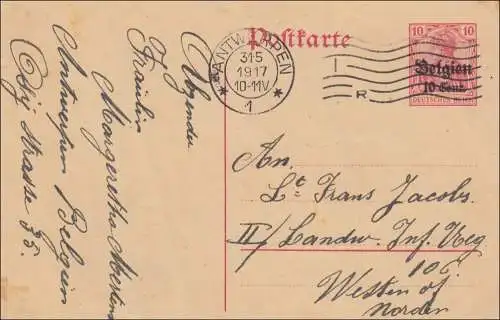 Postkarte
ANTWERPEN
31 5
1917
10-11V
1
I
R
10
10
Belgien
10 Cent.
DEUTSCHES REICH
An.
Lt Frans Jacobs
II/Landw. Inf. Reg
106.
Westen of
Norden
Absender
Fräulin
Margeretha Mertens
Antwerpen Belgien
strasse 35.